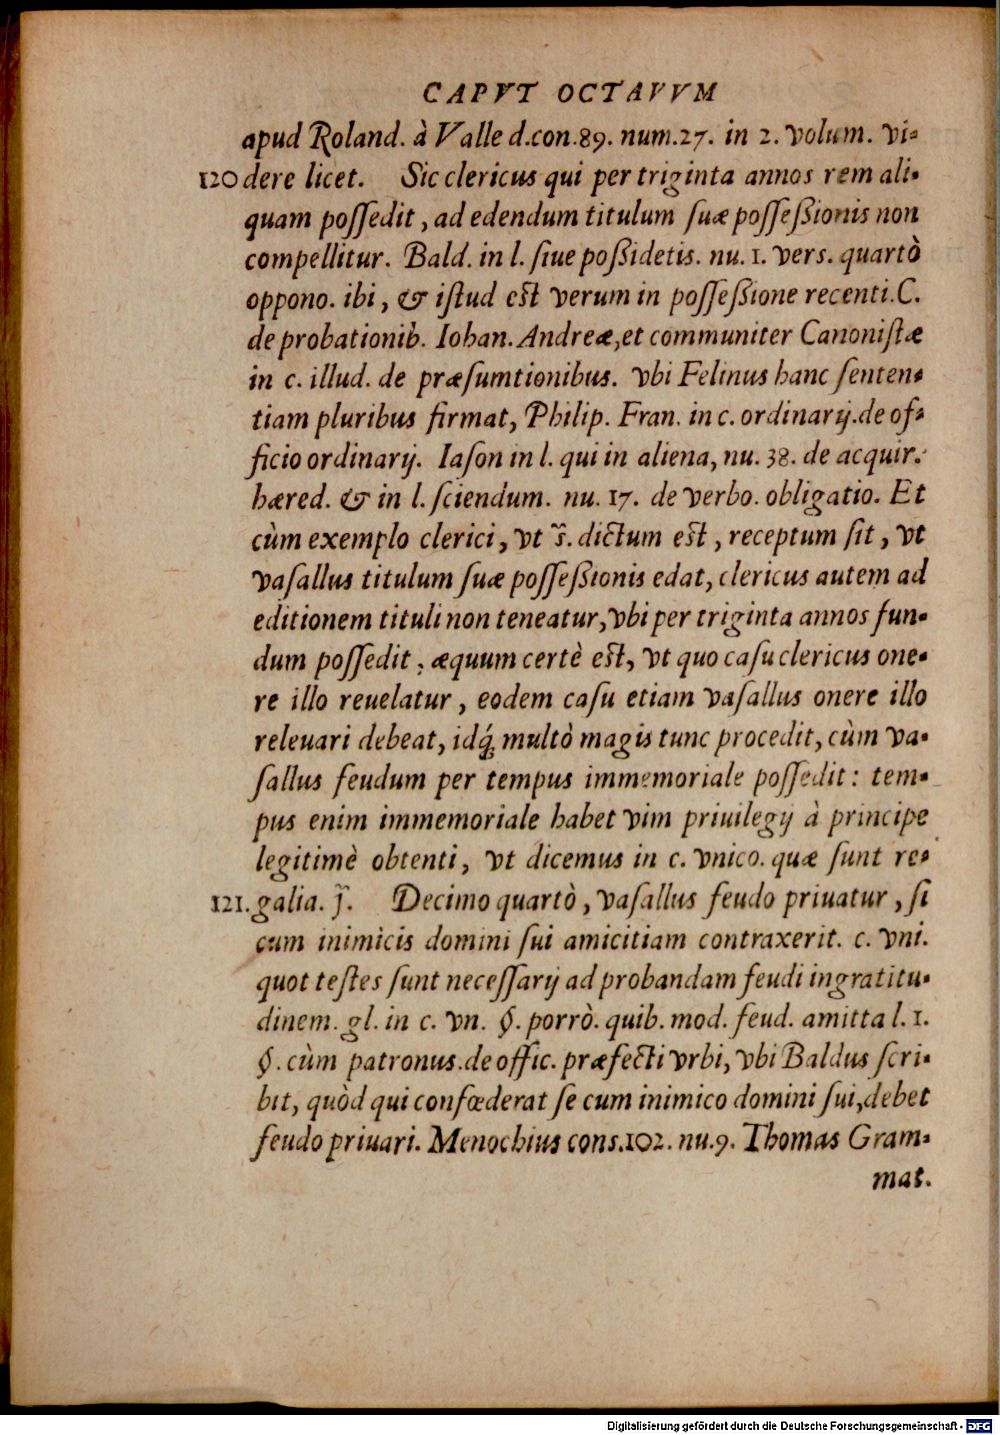 CAPVT OCTAVVM
apud Roland. à Valle d.con.89. num.27. in 2. volum. vi-
120 dere licet. Sic clericus qui per triginta annos rem ali-
quam poſſedit, ad edendum titulum ſuæ poſſeßionis non
compellitur. Bald. in l. ſiue poßidetis. nu. 1. verſ. quartò
oppono. ibi, & iſtud eſt verum in poſſeßione recenti. C.
de probationib. Iohan. Andreæ, et communiter Canoniſtæ
in c. illud. de præſumtionibus. vbi Felinus hanc ſenten-
tiam pluribus firmat, Philip. Fran. in c. ordinarij. de of-
ficio ordinarij. Iaſon in l. qui in aliena, nu. 38. de acquir.
hæred. & in l. ſciendum. nu. 17. de verbo. obligatio. Et
cùm exemplo clerici, vt s̃. dictum eſt, receptum ſit, vt
vaſallus titulum ſuæ poſſeßionis edat, clericus autem ad
editionem tituli non teneatur, vbi per triginta annos fun-
dum poſſedit; æquum certè eſt, vt quo caſu clericus one-
re illo reuelatur, eodem caſu etiam vaſallus onere illo
releuari debeat, idq́; multò magis tunc procedit, cùm va-
ſallus feudum per tempus immemoriale poſſedit: tem-
pus enim immemoriale habet vim priuilegij à principe
legitimè obtenti, vt dicemus in c. vnico. quæ ſunt re-
121. galia. j̃. Decimo quartò, vaſallus feudo priuatur, ſi
cum inimicis domini ſui amicitiam contraxerit. c. vni.
quot teſtes ſunt neceſſarij ad probandam feudi ingratitu-
dinem. gl. in c. vn. §. porrò. quib. mod. feud. amitta l. 1.
§. cùm patronus. de offic. præfecti vrbi, vbi Baldus ſcri-
bit, quòd qui confœderat ſe cum inimico domini ſui, debet
feudo priuari. Menochius conſ.102. nu.9. Thomas Gram-
mat.
Digitalisierung gefördert durch die Deutsche Forschungsgemeinschaft - DFG